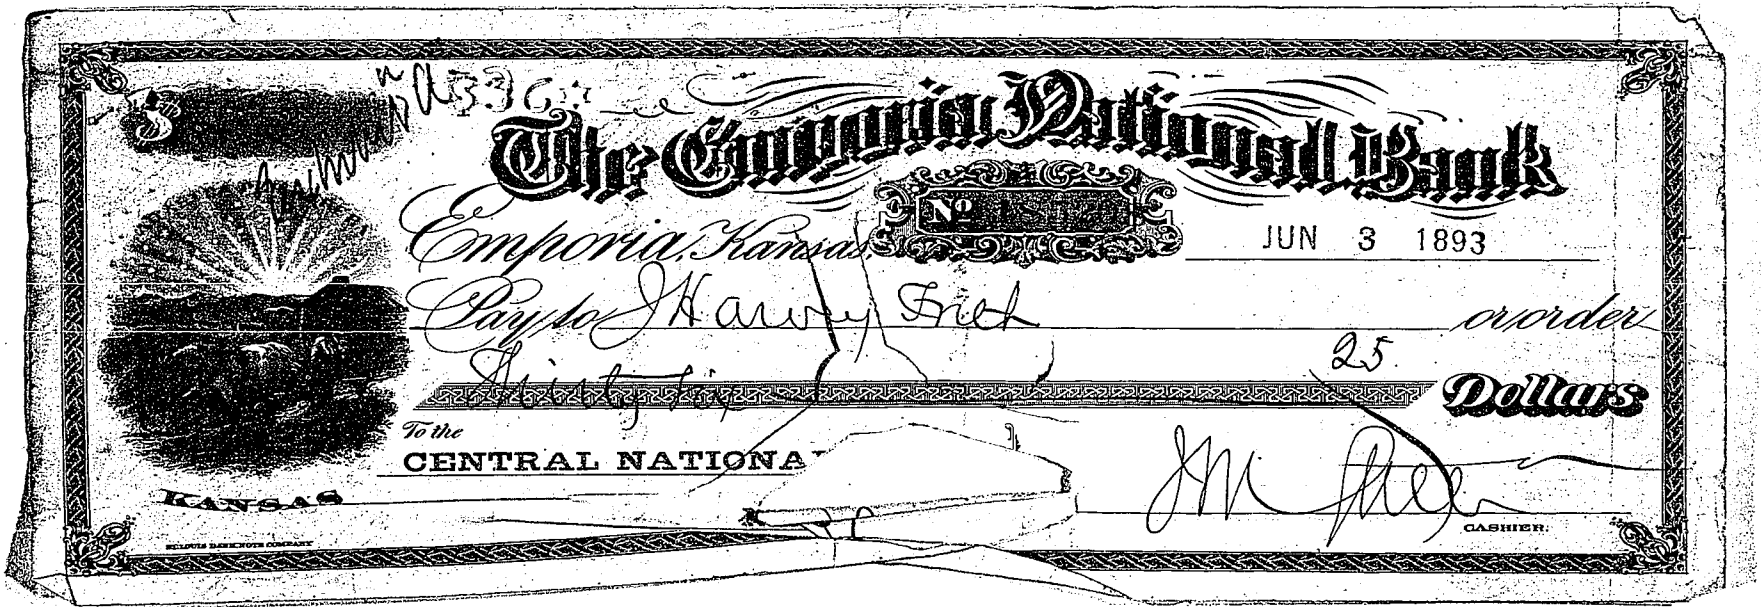 $
The Emporia National Bank
Emporia, Kansas, No JUN 3 1893
Pay to J Harvey Frith or order
Thirty six 25 Dollars
To the
CENTRAL NATIONA
KANSAS
CASHIER.
ST. LOUIS BANKNOTE COMPANY